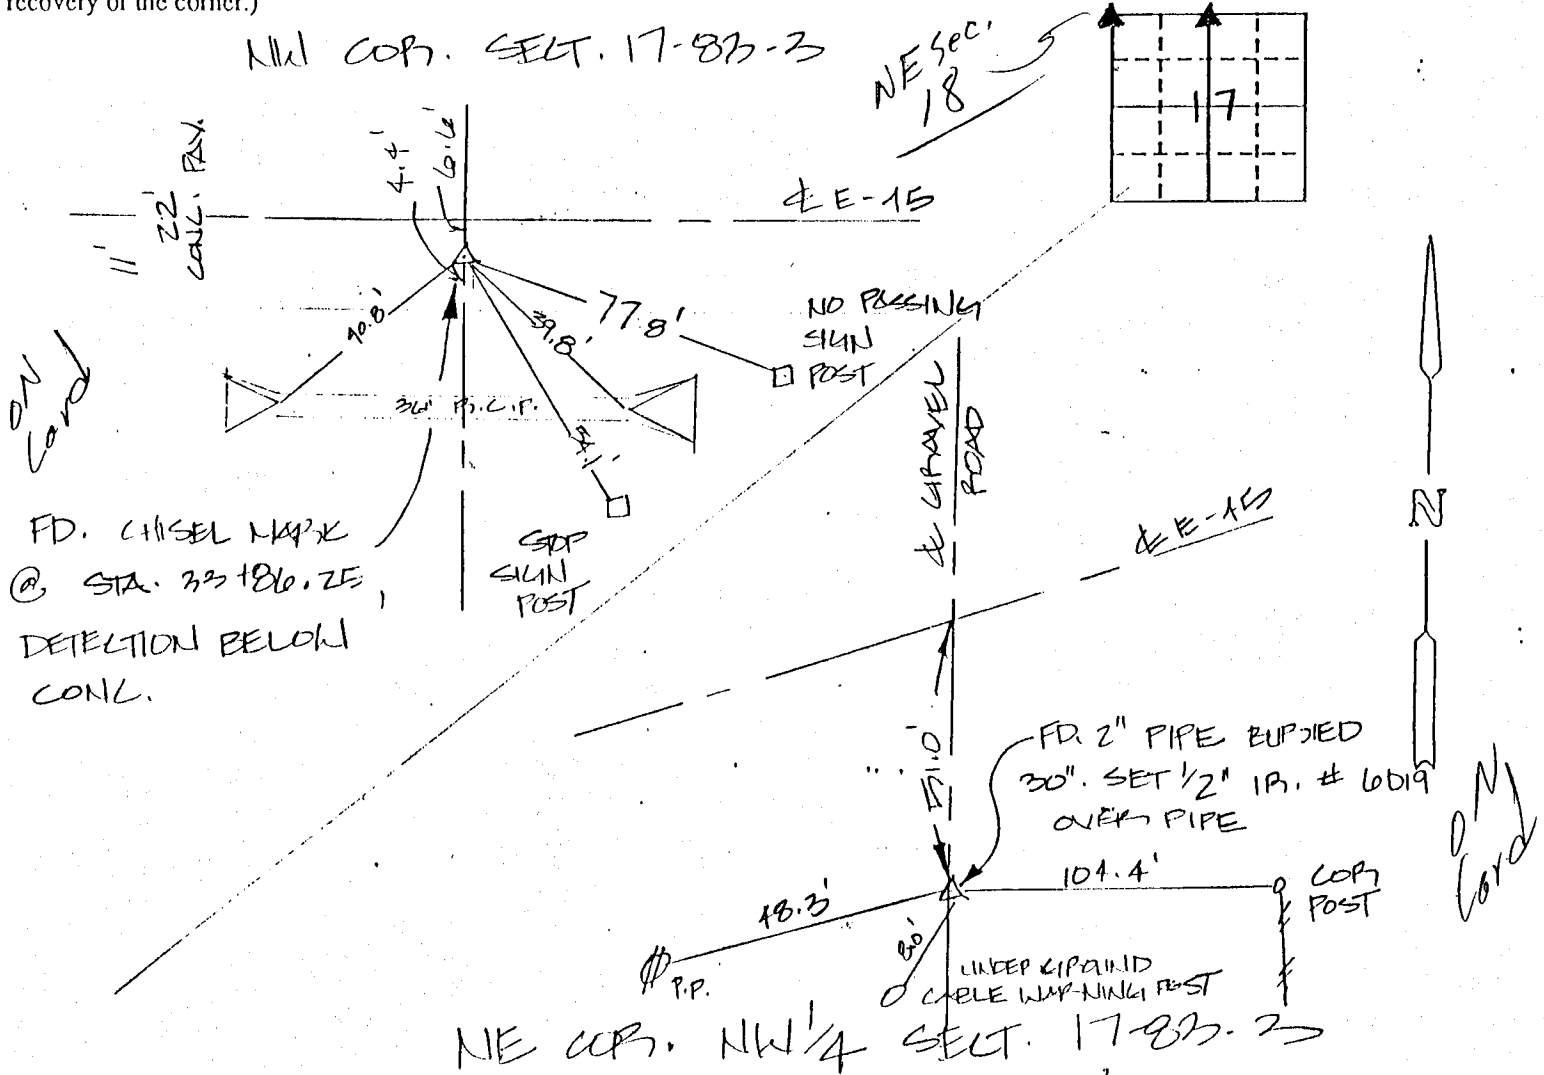 recovery of the corner.)
NW COR. SECT. 17-83-3
NE Sec.
18
17
22'
CONC. PAV.
11'
4.4'
6.6'
℄ E-45
40.8'
39.8'
77.8'
54.1'
NO PASSING
SIGN
POST
36" R.C.P.
ON
Card
FD. CHISEL MARK
@ STA. 33+86.25,
DETECTION BELOW
CONC.
STOP
SIGN
POST
℄ GRAVEL
ROAD
℄ E-45
N
51.0'
FD. 2" PIPE BURIED
30". SET 1/2" IR. # 6019
OVER PIPE
ON
Card
48.3'
104.4'
COR
POST
P.P.
UNDERGROUND
CABLE WARNING POST
NE COR. NW 1/4 SECT. 17-83-3